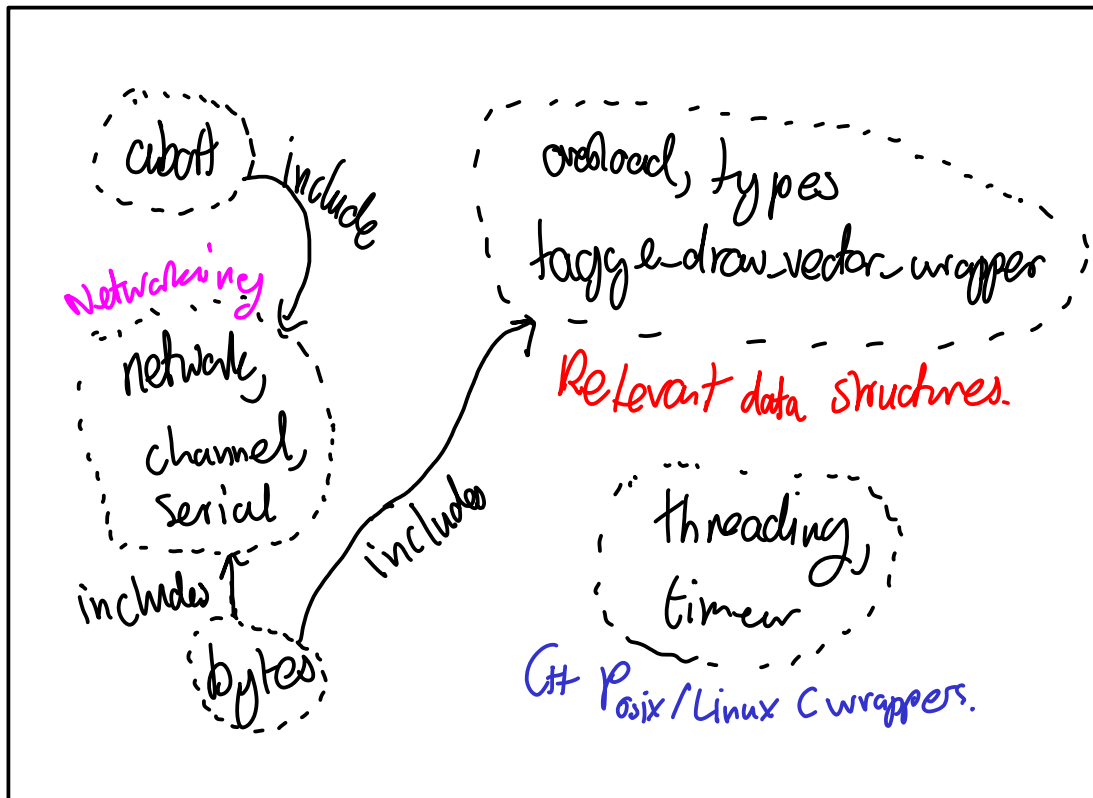 about
include
Networking
network,
channel,
serial
includes
bytes
includes
overload, types
tagge_draw_vector_wrapper
Relevant data structures.
threading,
timer
C++ Posix/Linux C wrappers.